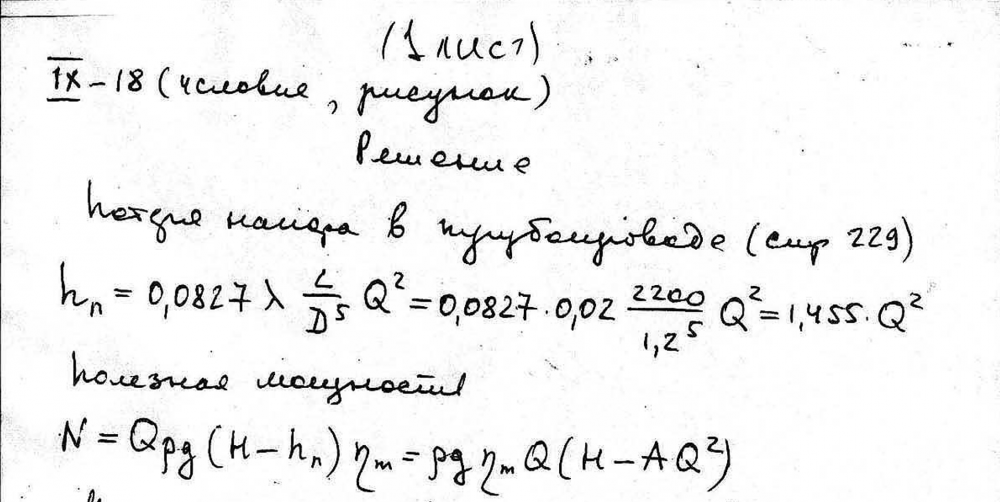 (1 лист)
IX-18 (условие, рисунок)
Решение
Потеря напора в трубопроводе (стр 229)
hп = 0,0827 λ L/D⁵ Q² = 0,0827·0,02 2200/1,2⁵ Q² = 1,455·Q²
Полезная мощность
N = Qρg(H-hп)ηm = ρgηmQ(H-AQ²)